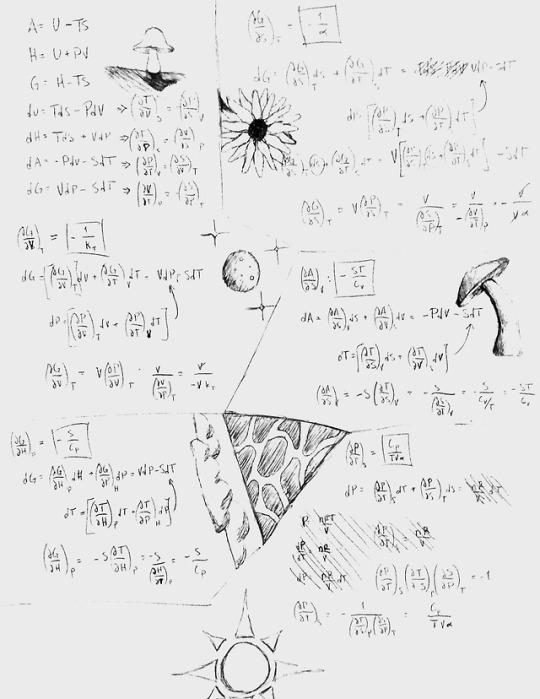 A = U - TS
H = U + PV
G = H - TS
dU = TdS - PdV ⇒ (∂T/∂V)_S = -(∂P/∂S)_V
dH = TdS + VdP ⇒ (∂T/∂P)_S = (∂V/∂S)_P
dA = -PdV - SdT ⇒ (∂P/∂T)_V = (∂S/∂V)_T
dG = VdP - SdT ⇒ (∂V/∂T)_P = -(∂S/∂P)_T
(∂G/∂S)_T = - 1/α
dG = (∂G/∂S)_T dS + (∂G/∂T)_S dT = VdP - SdT
dP = [(∂P/∂S)_T dS + (∂P/∂T)_S dT]
(∂G/∂S)_T dS + (∂G/∂T)_S dT = V[(∂P/∂S)_T dS + (∂P/∂T)_S dT] - SdT
(∂G/∂S)_T = V(∂P/∂S)_T = V/(∂S/∂P)_T = V/-(∂V/∂T)_P = - V/Vα
(∂G/∂V)_T = - 1/k_T
dG = [(∂G/∂V)_T] dV + (∂G/∂T)_V dT = VdP - SdT
dP = [(∂P/∂V)_T dV + (∂P/∂T)_V dT]
(∂G/∂V)_T = V(∂P/∂V)_T = V/(∂V/∂P)_T = V/-V k_T
(∂A/∂S)_V : - ST/C_V
dA = (∂A/∂S)_V dS + (∂A/∂V)_S dV = -PdV - SdT
dT = [(∂T/∂S)_V dS + (∂T/∂V)_S dV]
(∂A/∂S)_V = -S(∂T/∂S)_V = -S/(∂S/∂T)_V = -S/C_V/T = -ST/C_V
(∂G/∂H)_P = - S/C_P
dG = (∂G/∂H)_P dH + (∂G/∂P)_H dP = VdP - SdT
dT = [(∂T/∂H)_P dH + (∂T/∂P)_H dP]
(∂G/∂H)_P = -S(∂T/∂H)_P = -S/(∂H/∂T)_P = - S/C_P
(∂P/∂T)_S = C_P/TVα
dP = (∂P/∂T)_S dT + (∂P/∂S)_T dS =
(∂P/∂T)_S (∂T/∂S)_P (∂S/∂P)_T = -1
(∂P/∂T)_S = - 1/(∂T/∂S)_P (∂S/∂P)_T = C_P/TVα